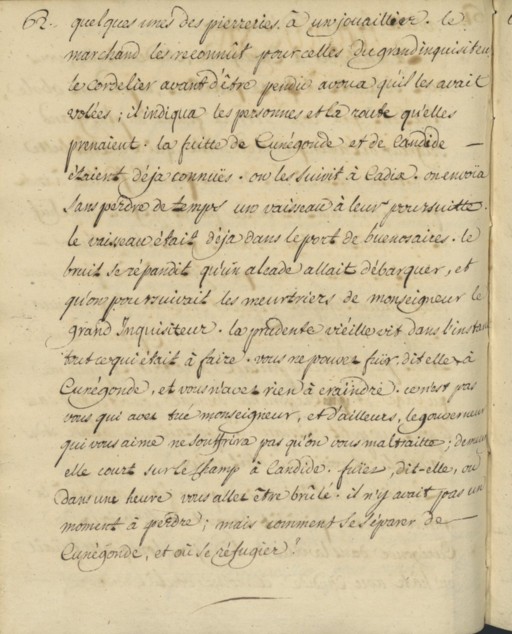 62. quelques unes des pierreries à un jouaillier. le
marchand les reconnût pour celles du grand inquisiteur
le cordelier avant d'être pendu avoua qu'il les avait
volées; il indiqua les personnes et la route qu'elles
prenaient. la fuitte de Cunégonde et de Candide —
étaient déja connuës. on les suivit à Cadix. on envoïa
sans perdre de temps un vaisseau à leur poursuitte.
le vaisseau était déja dans le port de buenosaires. le
bruit se répandit qu'un alcade allait débarquer, et
qu'on poursuivait les meurtriers de monseigneur le
grand Inquisiteur. la prudente vieille vit dans l'instant
tout ce qui était à faire. vous ne pouvez fuir, dit elle à
Cunégonde, et vous n'avez rien à craindre. ce n'est pas
vous qui avez tué monseigneur, et d'ailleurs, le gouverneur
qui vous aime ne souffrira pas qu'on vous maltraitte; demeurez
elle court sur le champ à Candide. fuiez, dit-elle, ou
dans une heure vous allez être brûlé. il n'y avait pas un
moment à perdre; mais comment se séparer de —
Cunégonde, et où se réfugier!